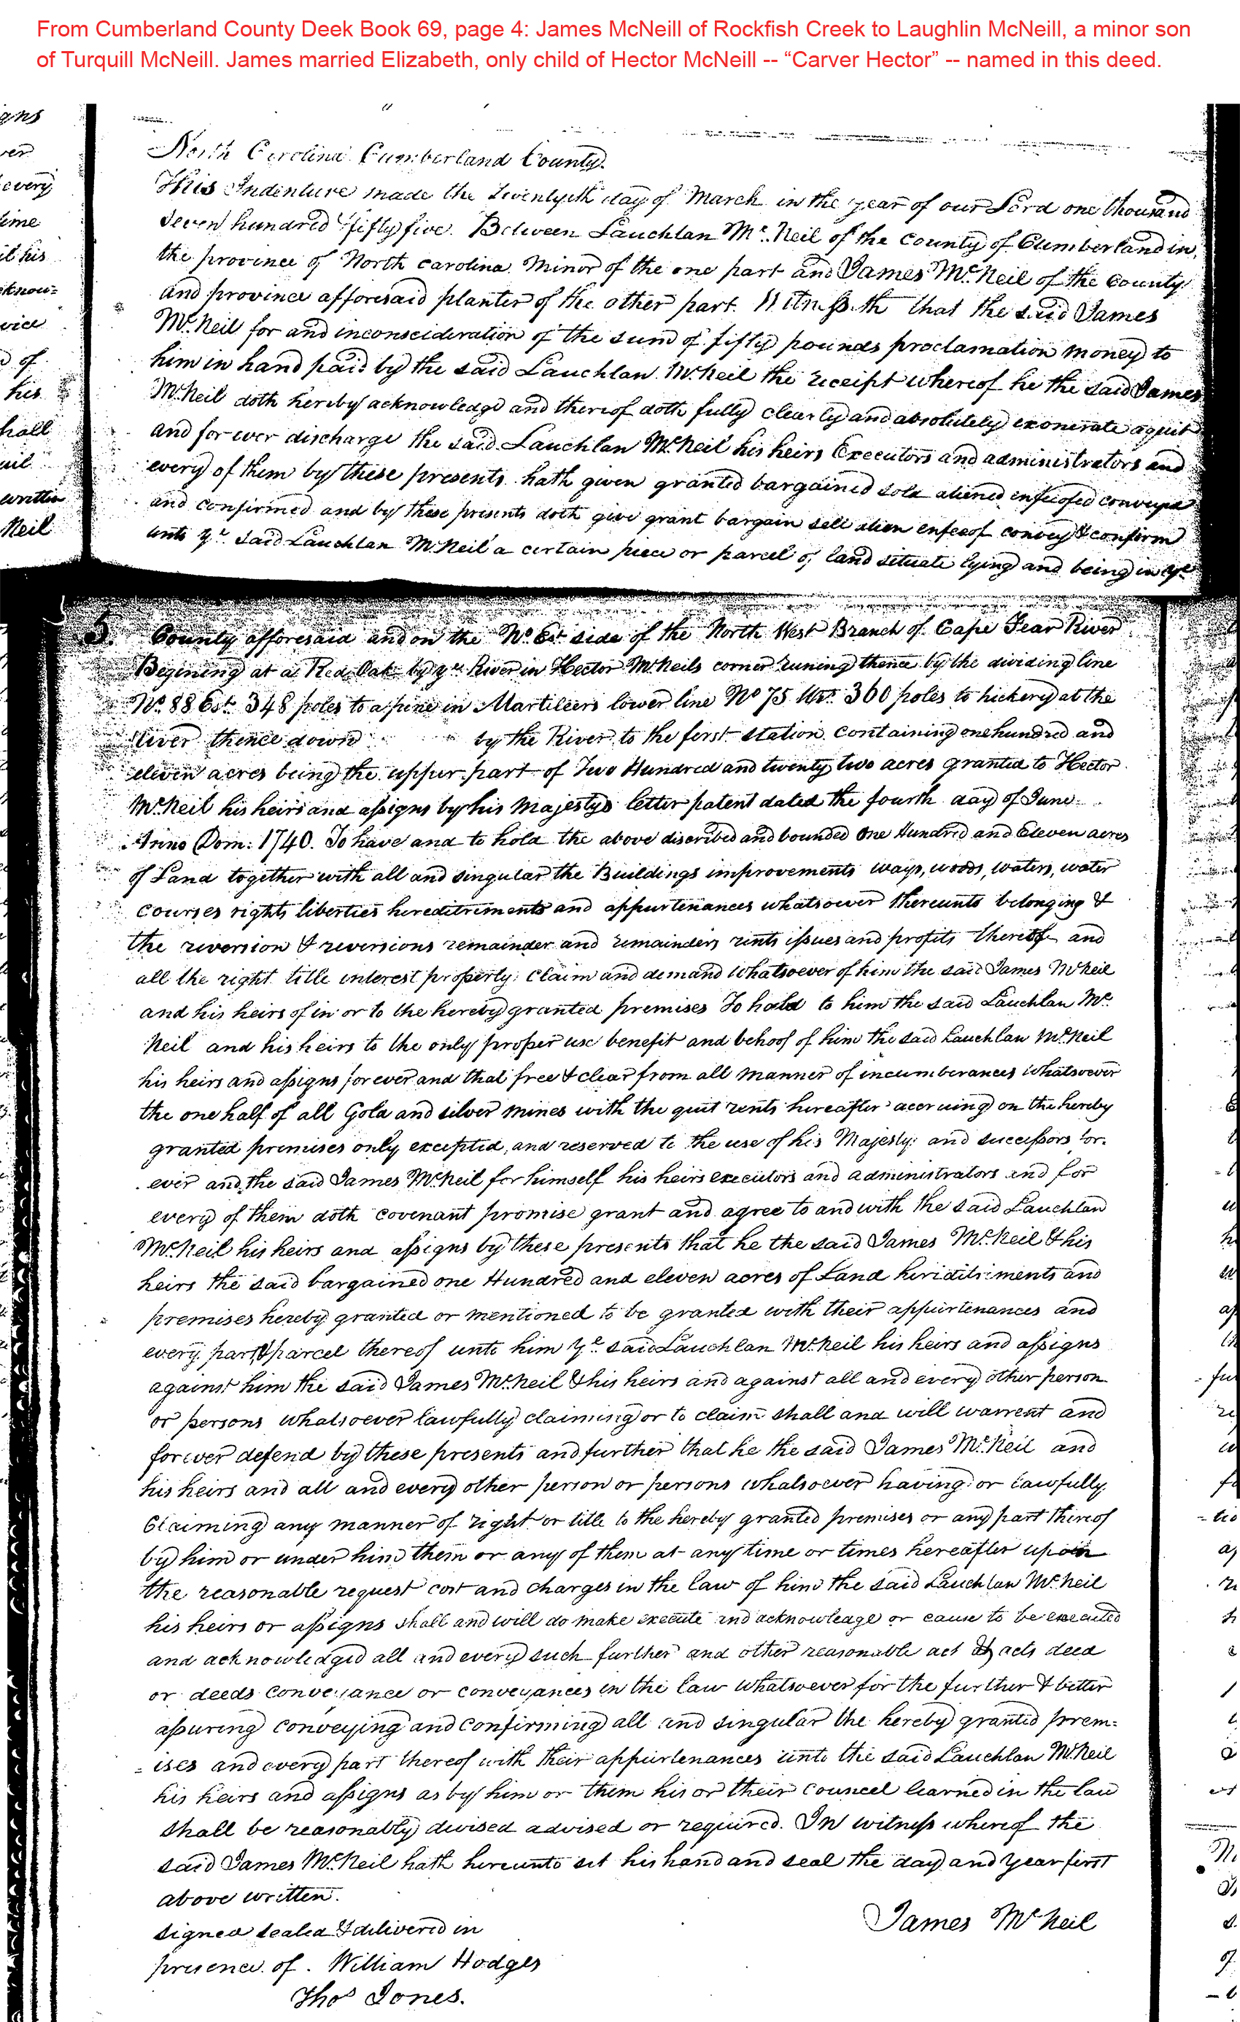 From Cumberland County Deek Book 69, page 4: James McNeill of Rockfish Creek to Laughlin McNeill, a minor son
of Turquill McNeill. James married Elizabeth, only child of Hector McNeill -- “Carver Hector” -- named in this deed.
North Carolina Cumberland County.
This Indenture made the day of March in the year of our Lord one thousand
Seven hundred fifty five. Between Lauchlan Mc.Neil of the County of Cumberland in
the province of North Carolina Minor of the one part and James McNeil of the County
and province afforesaid planter of the other part. Witnesseth that the said James
McNeil for and inconscideration of the sum of fifty pounds proclamation money to
him in hand paid by the said Lauchlan McNeil the receipt whereof he the said James
McNeil doth hereby acknowledge and thereof doth fully clearly and absolutely exonerate aquit
and forever discharge the said Lauchlan McNeil his heirs Executors and administrators and
every of them by these presents hath given granted bargained sold aliened enfeofed conveyed
and confirmed and by these presents doth give grant bargain sell alien enfeeof convey & confirm
unto ye said Lauchlan McNeil a certain piece or parcel of land situate lying and being in ye
5 County afforesaid and on the No. Est side of the North West Branch of Cape Fear River
Begining at a Red Oak by ye River in Hector McNeils corner runing thence by the dividing line
No. 88 Est. 348 poles to a pine in lower line No 75 Wt. 360 poles to hickery at the
River thence down by the River to the ferst station containing one hundred and
eleven acres being the upper part of Two Hundred and twenty two acres granted to Hector
McNeil his heirs and assigns by his Majestys letter patent dated the fourth day of June
Anno Dom: 1740. To have and to hold the above discribed and bounded One Hundred and Eleven acres
of Land together with all and singular the Buildings improvements ways, woods, waters, water
courses rights liberties hereditriments and appurtenances whatsoever thereunto belonging &
the reversion & reversions remainder and remainders rints issues and profits thereof and
all the right title interest property claim and demand whatsoever of him the said James McNeil
and his heirs of in or to the hereby granted premises To hold to him the said Lauchlan Mc.
Neil and his heirs to the only proper use benefit and behoof of him the said Lauchlan McNeil
his heirs and assigns forever and that free & clear from all manner of incumberances whatsoever
the one half of all Gold and silver mines with the quit rents hereafter accruing on the hereby
granted premises only excepted, and reserved to the use of his Majesty and successors for-
ever and the said James McNeil for himself his heirs executors and administrators and for
every of them doth covenant promise grant and agree to and with the said Lauchlan
McNeil his heirs and assigns by these presents that he the said James McNeil & his
heirs the said bargained one Hundred and eleven acres of Land and
premises hereby granted or mentioned to be granted with their appurtenances and
every part & parcel thereof unto him ye. said Lauchlan McNeil his heirs and assigns
against him the said James McNeil & his heirs and against all and every other person
or persons whatsoever lawfully claiming or to claim shall and will warrent and
forever defend by these presents and further that he the said James McNeil and
his heirs and all and every other person or persons whatsoever having or lawfully
Claiming any manner of right or title to the hereby granted premises or any part thereof
by him or under him them or any of them at any time or times hereafter upon
the reasonable request cost and charges in the law of him the said Lauchlan McNeil
his heirs or assigns shall and will do make execute and acknowleage or cause to be executed
and acknowledged all and every such further and other reasonable act & acts deed
or deeds conveyance or conveyances in the law whatsoever for the further & better
assuring conveying and confirming all and singular the hereby granted prem=
=ises and every part thereof with their appurtenances unto the said Lauchlan McNeil
his heirs and assigns as by him or them his or their councel learned in the law
shall be reasonably devised advised or required. In witness whereof the
said James McNeil hath hereunto set his hand and seal the day and year first
above written.
signed sealed & delivered in
James McNeil
presence of. William Hodges
Thos Jones.